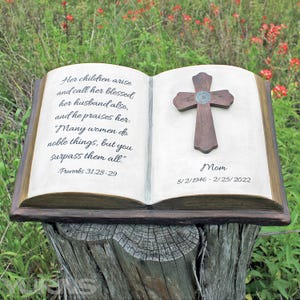 Her children arise
and call her blessed,
her husband also,
and he praises her:
"Many women do
noble things, but you
surpass them all."
Proverbs 31:28-29
Mom
5/2/1946 - 2/25/2022